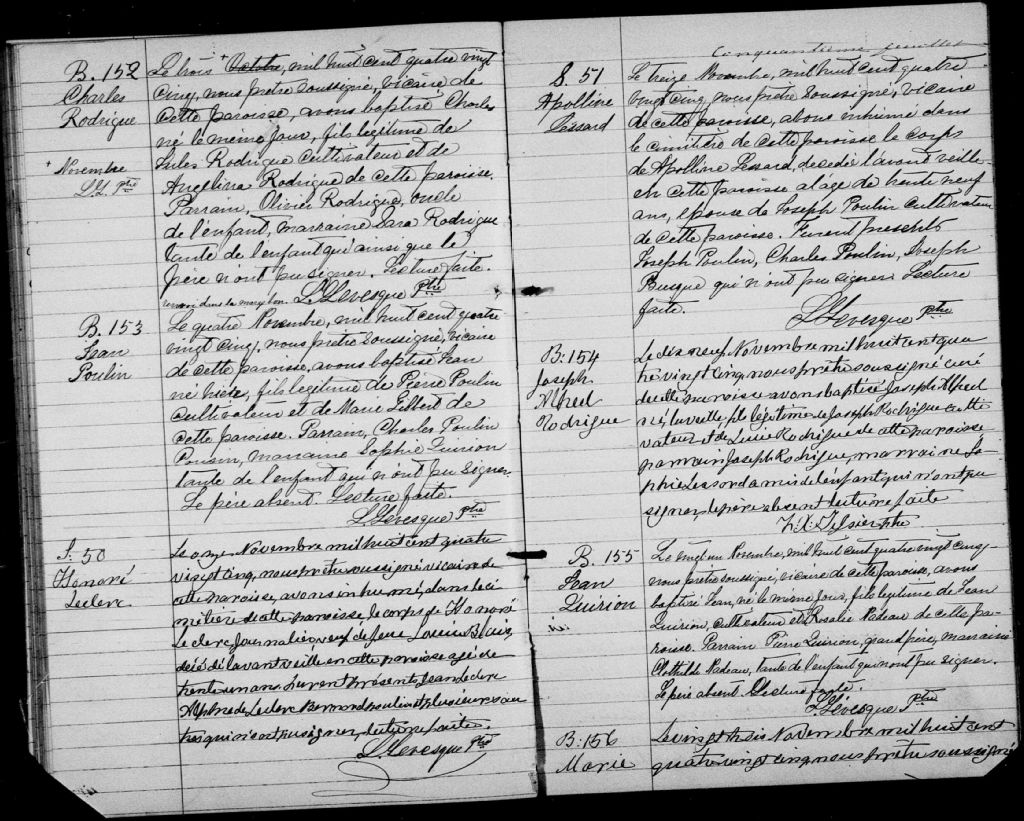 B. 152
Charles
Rodrigue
+ Novembre
L.L. Ptre
Le trois + Octobre, mil huit cent quatre vingt
cinq, nous prêtre soussigné, vicaire de
cette paroisse, avons baptisé Charles
né le même jour, fils légitime de
Jules Rodrigue cultivateur et de
Angelina Rodrigue de cette paroisse.
Parrain, Olivier Rodrigue, oncle
de l'enfant, marraine Sara Rodrigue
tante de l'enfant qui ainsi que le
père n'ont pu signer. Lecture faite.
renvoi dans la marge bon. L. Levesque Ptre
B. 153
Jean
Poulin
Le quatre Novembre, mil huit cent quatre
vingt cinq, nous prêtre soussigné, vicaire
de cette paroisse, avons baptisé Jean
né hier, fils légitime de Pierre Poulin
cultivateur et de Marie Gilbert de
cette paroisse. Parrain, Charles Poulin
Cousin, marraine Sophie Quirion
tante de l'enfant qui n'ont pu signer.
Le père absent. Lecture faite.
L. Levesque Ptre
S. 50
Honoré
Leclerc
Le onze Novembre mil huit cent quatre
vingt cinq, nous prêtre soussigné vicaire de
cette paroisse, avons inhumé, dans le ci
metière de cette paroisse le corps de Honoré
Leclerc journalier, veuf de feue Louise Blais,
décédé l'avant veille en cette paroisse agé de
trente un ans. Furent présents, Jean Leclerc
Alphrede Leclerc Bernard Poulin et plusieurs au
tres qui n'ont pu signer, lecture faite.
L. Levesque Ptre
Cinquantième feuillet
S. 51
Apolline
Lessard
Le treize Novembre, mil huit cent quatre
vingt cinq, nous prêtre soussigné, vicaire
de cette paroisse, avons inhumé dans
le cimitière de cette paroisse le corps
de Apolline Lessard, décédé l'avant veille
en cette paroisse al'âge de trente neuf
ans, épouse de Joseph Poulin cultivateur
de cette paroisse. Furent présents
Joseph Poulin, Charles Poulin, Joseph
Busque qui n'ont pu signer. Lecture
faite.
L. Levesque Ptre
B. 154
Joseph
Alfred
Rodrigue
Le dix neuf Novembre mil huit cent qua
tre vingt cinq, nous prêtre soussigné curé
de cette paroisse avons baptisé Joseph Alfred
né la veille, fils légitime de Joseph Rodrigue culti
vateur et de Luce Rodrigue de cette paroisse
parrain Joseph Rodrigue, marraine So
phie Lessard amis de l'enfant qui n'ont pu
signer, le père absent lecture faite
B. 155
Jean
Quirion
Le vingt un Novembre, mil huit cent quatre vingt cinq,
nous prêtre soussigné, vicaire de cette paroisse, avons
baptisé Jean, né le même jour, fils légitime de Jean
Quirion, cultivateur et Rosalie Nadeau de cette pa-
roisse. Parrain Pierre Quirion, grand père, marraine
Clothilde Nadeau, tante de l'enfant qui n'ont pu signer.
Le père absent. Lecture faite.
L. Levesque Ptre
B. 156
Marie
Le vingt trois Novembre mil huit cent
quatre vingt cinq nous prêtre soussigné